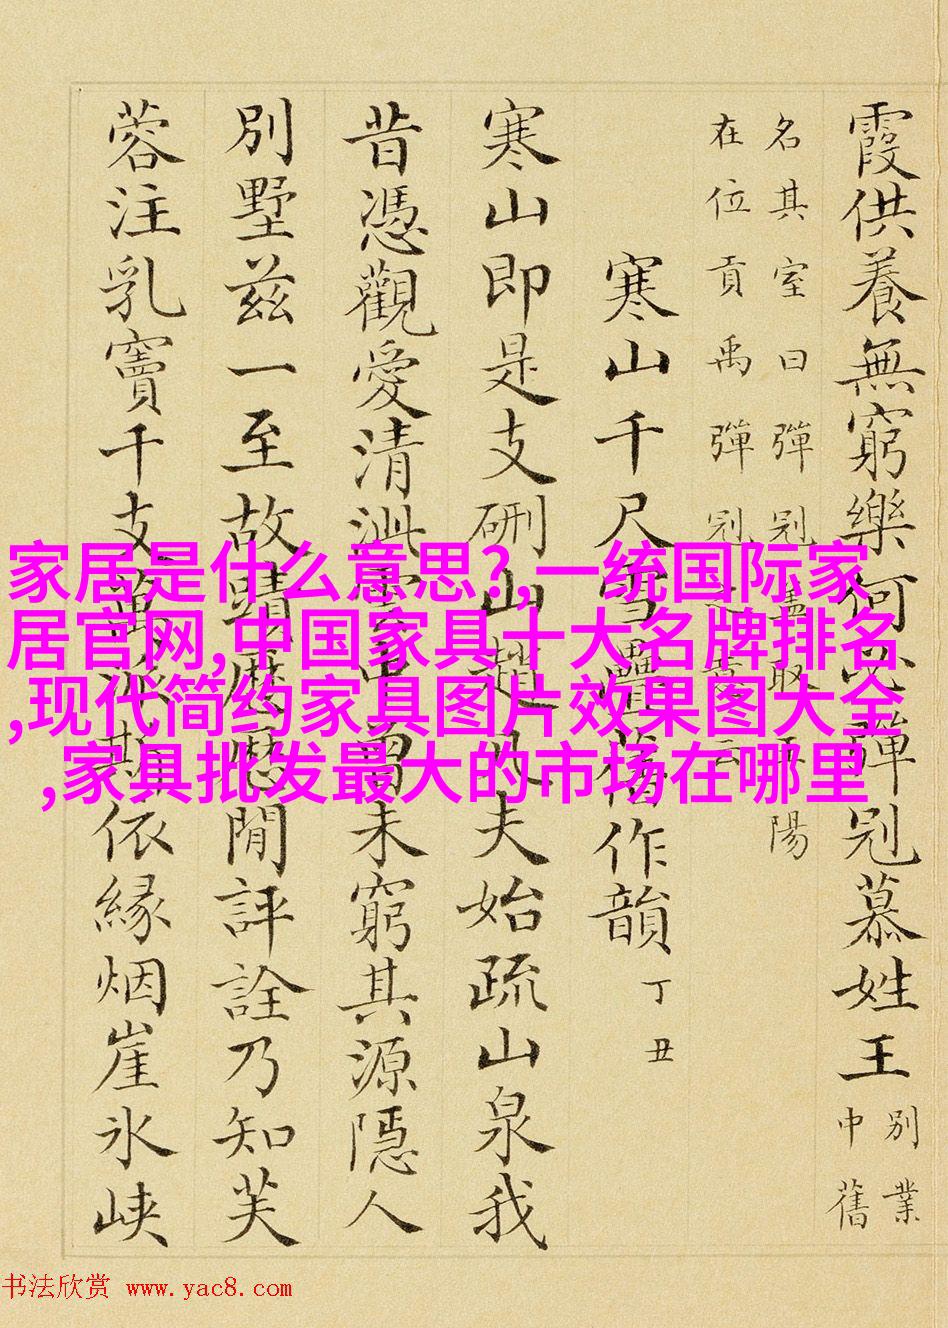 霞供養無窮樂何必彈冠慕姓王
别業
中舊
名其室曰彈冠蓋取王陽
在位貢禹彈冠之意云
寒山千尺雪疊舊作韻 丁丑
寒山即是支硎山趙凡夫始疏山泉我
昔憑觀愛清泚曾未窮其源隱人
別墅兹一至故晴歷閒評詮乃知芙
蓉注乳竇千支萬派斯依緣烟崖氷峡
家居是什么意思?,一统国际家
居官网,中国家具十大名牌排名
,现代简约家具图片效果图大全
,家具批发最大的市场在哪里
书法欣赏 www.yac8.com